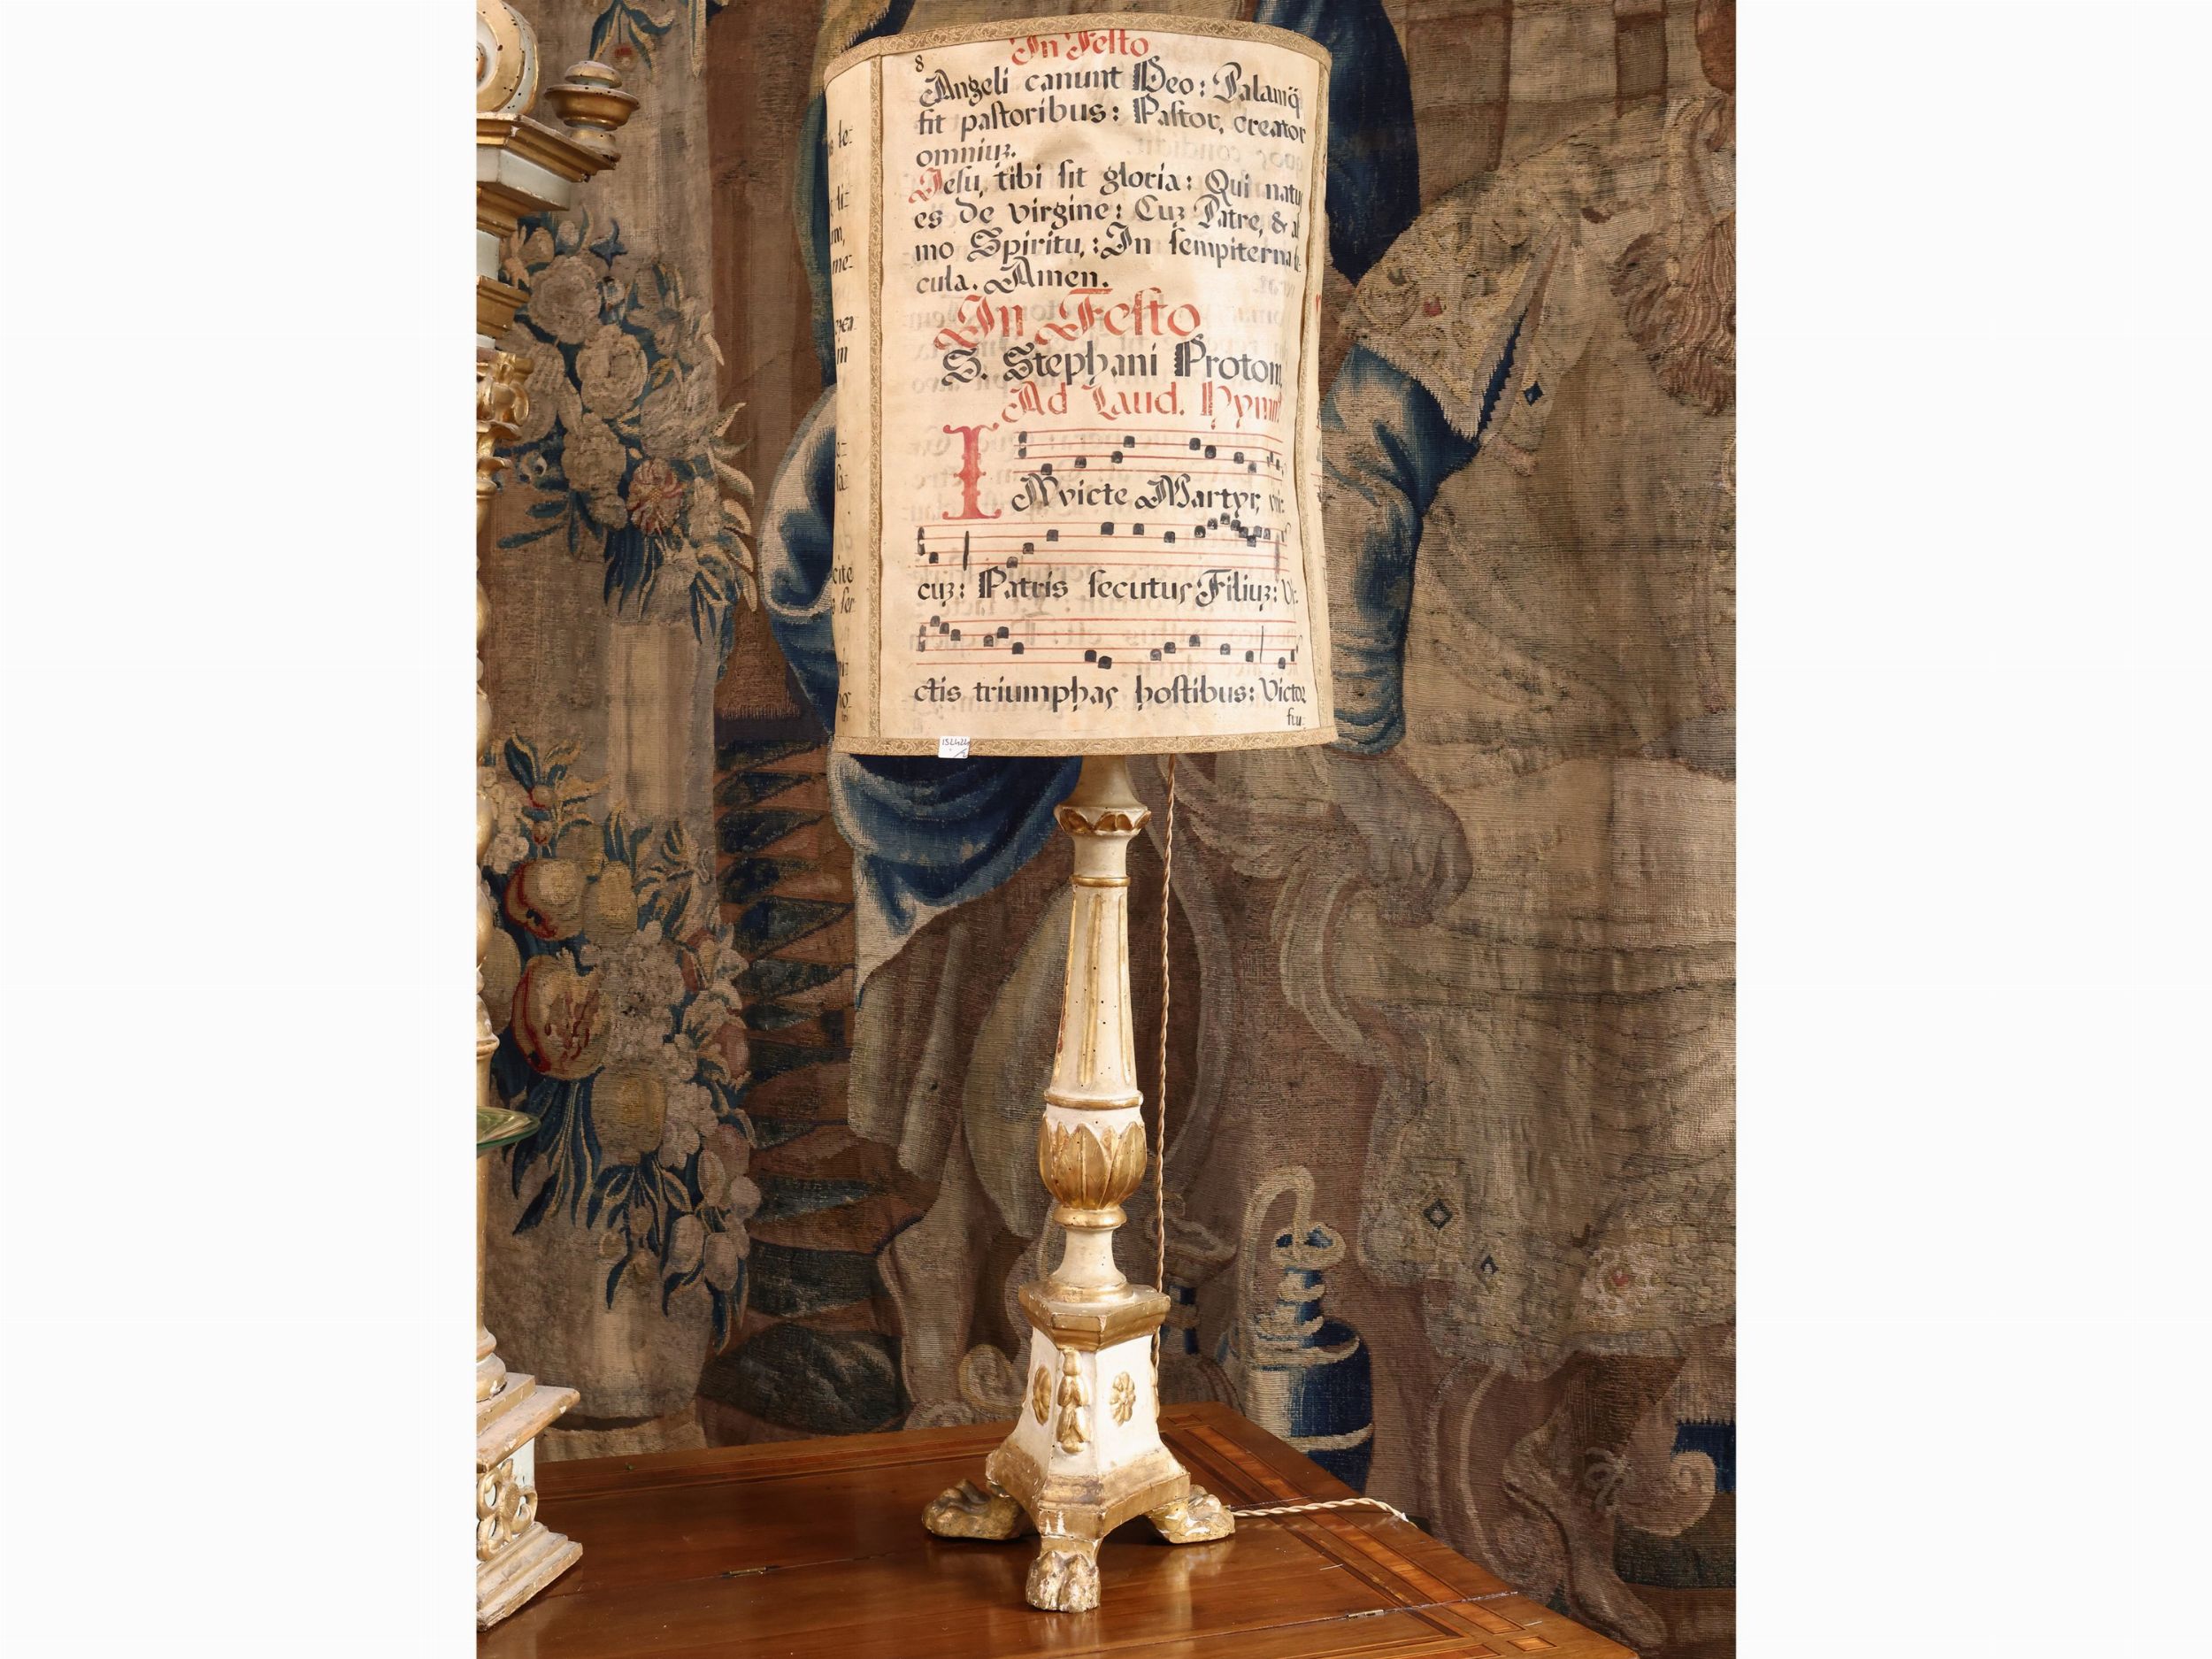 In Festo
8
Angeli canunt Deo: Palamq̃
fit pastoribus: Pastor, creator
omniuȝ.
Jesu, tibi sit gloria: Qui natu
es de virgine: Cuȝ Patre, & al
mo Spiritu,: In sempiterna se
cula. Amen.
In Festo
S. Stephani Protom
Ad Laud. Hymn
INvicte Martyr, vni:
cuȝ: Patris secutus Filiuȝ: Vi:
ctis triumphas hostibus: Victor
fru: